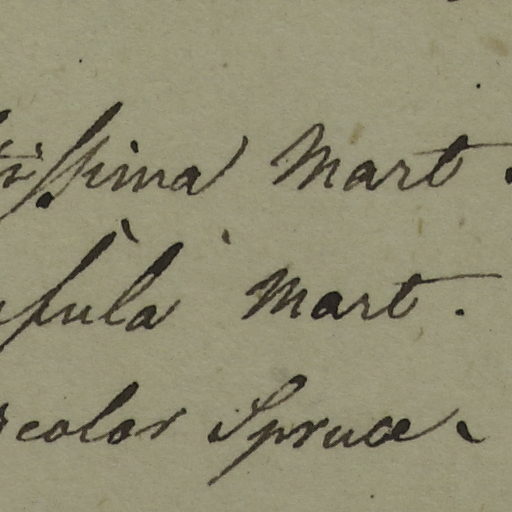 tissima Mart.
usula Mart.
color Spruce.